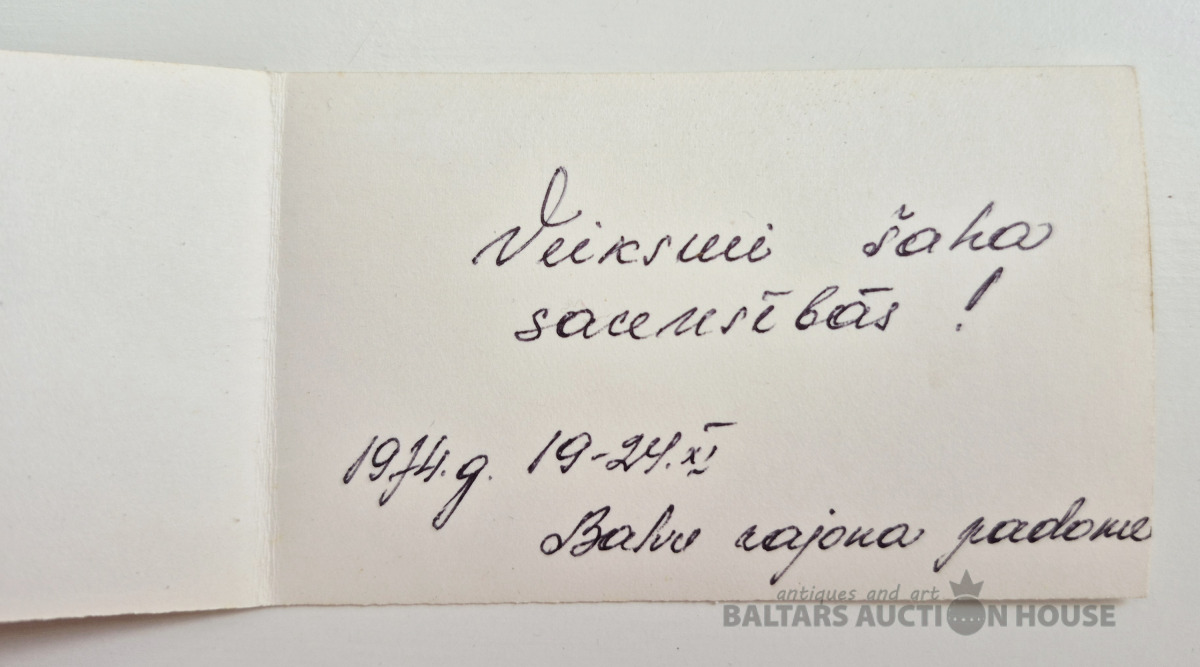 Veiksmi šaha
sacensībās !
1974.g. 19-24.XI
Balvu rajona padome
antiques and art
BALTARS AUCTION HOUSE